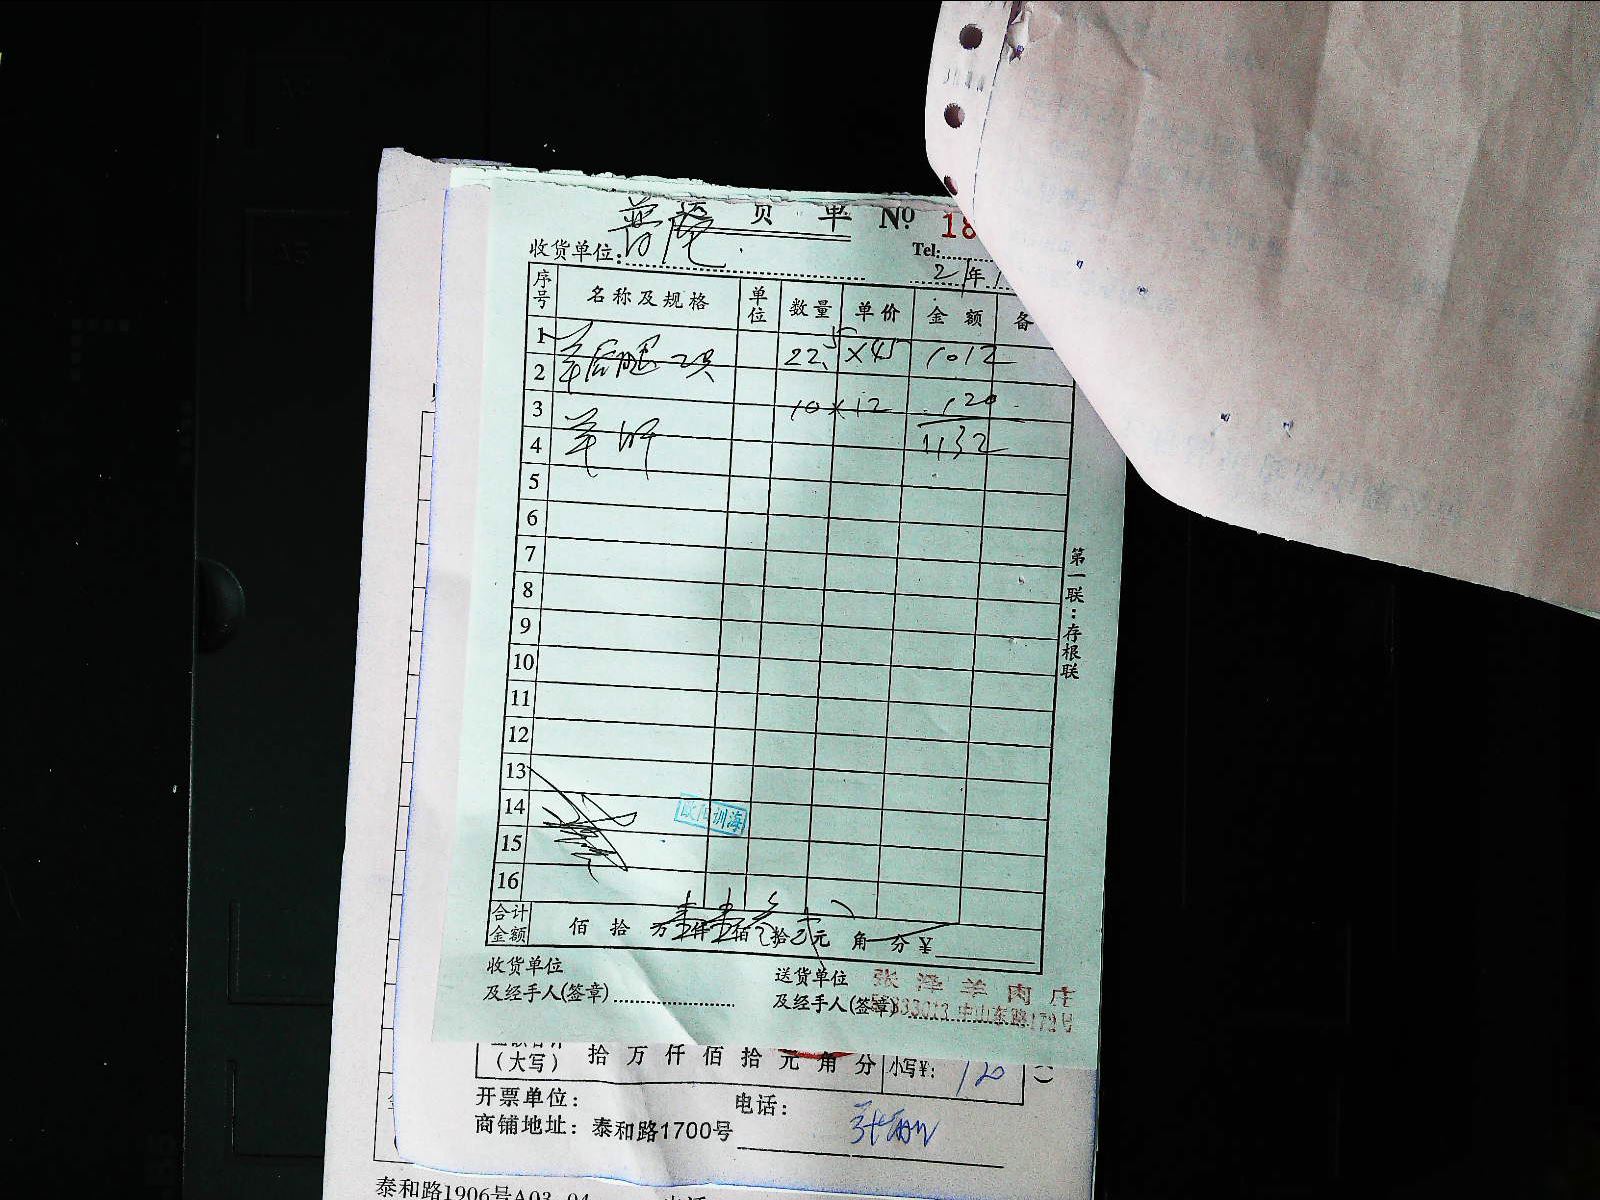 页 单 № 18
收货单位:
Tel:
2年
序号 名称及规格 单位 数量 单价 金额 备
1 羊后腿 22.5 ×45 1012
2
3 10 ×12 120
4 羊肝 1132
5
6
7
8
9
10
11
12
13
14 欧阳训海
15
16
合计金额 佰 拾 万壹仟壹佰叁拾贰元 角 分 ¥
收货单位 送货单位 张泽羊肉庄
及经手人(签章) 及经手人(签章) 中山东路172号
第一联：存根联
(大写) 拾 万 仟 佰 拾 元 角 分 小写¥: 120
开票单位: 电话:
商铺地址: 泰和路1700号
泰和路1906号A03